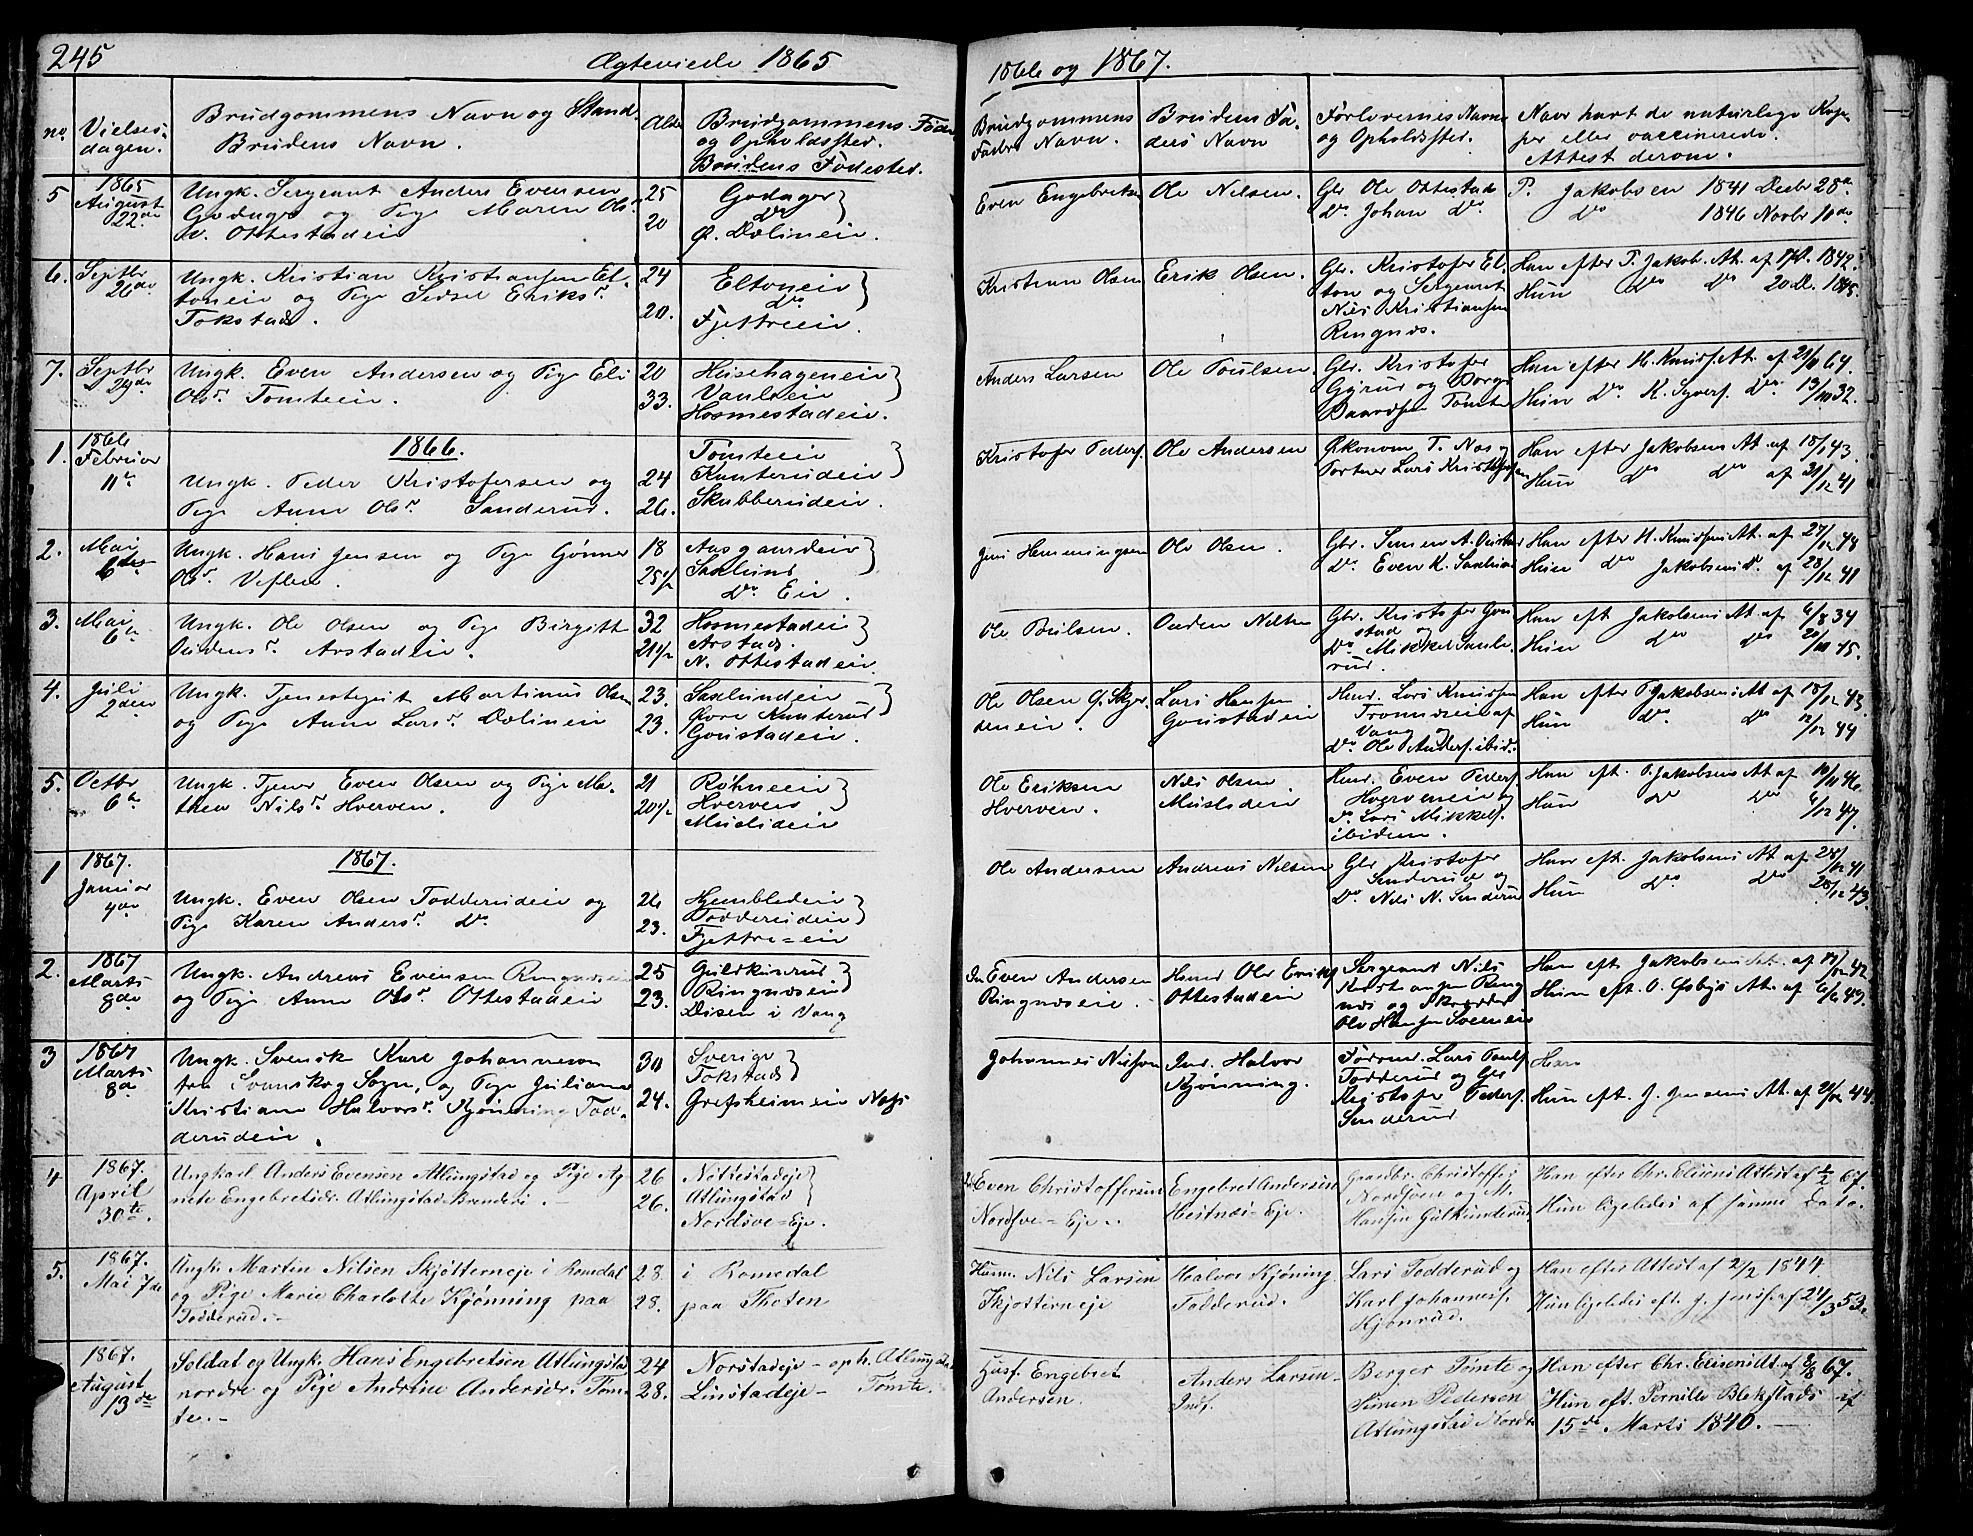 245
Ægteviede 1865
1866 og 1867.
no.
Vielses-
dagen.
Brudgommens Navn og Stand.
Brudens Navn.
Alder
Brudgommens Føde-
og Opholdssted.
Brudens Fødested.
Brudgommens
Faders Navn.
Brudens Fa-
ders Navn
Forlovernes Navne
og Opholdssted.
Naar havt de naturlige Kop-
per eller vaccinerede.
Attest derom.
5
1865
August
22de
Ungk. Sergeant Anders Evensen
Godager og Pige Maren Olsr
Ottestadeie
25
20
Godager
do
Ø. Dælineie.
Even Engebretsen
Ole Nilsen.
Gbr. Ole Ottestad
do. Johan do.
P. Jakobsen 1841 Decbr 28de
do 1846 Novbr 10de
6.
Septbr
26de
Ungk. Kristian Kristiansen El-
toneie og Pige Sidsel Eriksr.
Tokstad.
24
20.
Eltoneie
do
Fjettreeie.
Kristian Olsen
Erik Olsen.
Gbr. Kristofer El-
ton og Sergeant
Nils Kristiansen
Ringnæs.
Han efter P. Jakob. At. af 1842.
Hun do do 20 D. 1845.
7.
Septbr
29de
Ungk. Even Andersen og Pige Eli
Olsr. Tomteeie.
20
33.
Heisehageneie
Hosmestadeie.
Anders Larsen
Ole Poulsen.
Gbr. Kristofer
Gjørud og Borge
Baardsen Tomte
Han efter H. Knuds. At. af 21/11 64.
Hun do K. Syvers. do 13/10 32.
1.
1866
Februar
11te
1866.
Ungk. Peder Kristofersen og
Pige Anne Olsr. Sanderud.
24
26.
Tomteeie
Kunterudeie
Skabberudeie.
Kristofer Peders.
Ole Andersen
Økonom T. Næs og
Portner Lars Kristofersen
Han efter Jakobsens At. af 18/1 43.
Hun do do af 31/12 41
2.
Mai
6te
Ungk. Hans Jensen og Pige Gønner
Olsr. Veflen.
18
25 1/2
Aasgaardeie
Saxlund
do Eie.
Jens Hemmingsen
Ole Olsen.
do Even K. Saxlund
Han efter H. Knudsens At. af 27/12 48
Hun do Jakobsens do. af 28/12 41
3.
Mai
6te
Ungk. Ole Olsen og Pige Birgitte
Oudensr. Arstadeie.
32
21 1/2
Hosmestadeie
Arstad.
N. Ottestadeie
Ole Poulsen.
Ouden Nilsen
Gbr. Kristofer Gou-
stad og
do Mikkel Sande-
rud.
Han eft. Jakobsens At. af 6/8 34
Hun do do 20/10 45.
4.
Juli
2den
Ungk. Tjenestegut Martinus Olsen
og Pige Anne Larsr. Dælineie
23.
23.
Saxlundeie
Øvre Kunterud
Goustadeie.
Ole Olsen G. Skjer-
deneie.
Lars Hansen
Goustadeie
Husm. Lars Knudsen
Vang og
do Ole Anders. ibid.
Han efter P. Jakobsens At af 18/12 43.
Hun do. do 12/12 44
5.
Octbr
6te
Ungk. Tjener Even Olsen og Pige Ma-
thea Nilsr Hverven.
21
20 1/2
Røhneeie
Hverven
Muslideie
Ole Eriksen
Hverven.
Nils Olsen
Muslideie
Husm. Even Peders.
Hverveneie og
do. Lars Mikkels.
ibidem.
Han eft. P. Jakobsens At af 10/11 46.
Hun do do 6/12 47.
1
1867.
Januar
4de
1867.
Ungk. Even Olsen Todderudeie og
Pige Karen Andersr. do
26
23.
Hjembledeie
Todderudeie
Fjettre-eie
Ole Andersen
Andreas Nilsen
Gbr Kristofer
Sanderud og
do Nils N. Sanderud
Han eft. Jakobsens At af 28/12 41
Hun do do 28/12 43.
2.
1867
Marts
8de
Ungk. Andreas Evensen Ringnæseie
og Pige Anne Olsr. Ottestadeie
25
23.
Guldkunrud
Ringnæseie
Disen i Vang
Even Andersen
Ringnæseie.
Husm. Ole Eriks.
Ottestadeie
Sergeant Nils
Kristiansen Ring-
næs og Skrædder
Ole Hansen Sveeneie
Han eft. Jakobsens At. af 14/12 42
Hun eft. O. Øsbys At. af 6/6 49.
3
1867
Marts
8de
Ungk. Svensk Karl Johanneson
fra Svanskog Sogn, og Pige Juliane
Kristiane Halvorsr. Kjønning Tod-
derudeie.
30
24.
Sverige
Tokstad
Grefsheimeie Næs
Johannes Nilsson
Ind. Halvor
Kjønning.
Forsm. Lars Pauls.
Todderud og Gbr
Kristofer Peders.
Sanderud
Han
Hun eft. J. Jensens At. af 21/12 44.
4
1867.
April
30te.
Ungkarl Anders Evensen Atlungstad og Pige Ag-
nete Engebretsdr. Atlungstad-Brenderi.
26
26.
Notrestadeje
Atlungstad
Nordsve-Eje.
Even Christoffersen
Nordsve-Eje.
Engebret Andersen
Hestnæs-Eje.
Gaardbr. Christoffer
Nordsveen og M.
Hansen Gulkunderud
Han efter Chr. Elisens Attest af 1/2 67.
Hun ligeledes af samme Dato.
5.
1867.
Mai 7de
Ungk. Martin Nilsen Skjøtterneje i Romdal
og Pige Marie Charlotte Kjønning paa
Todderud.-
28
28.
i Romedal
paa Thoten
Husm. Nils Larsen
Skjøtterneje
Halvor Kjøning
Todderud.
Lars Todderud og
Karl Johannesf.
Kjønrud.
Han efter Attest af 2/2 1844.
Hun ligeledes eft. J. Jens. af 24/3 53.
1867.
August
13de
Soldat og Ungk. Hans Engebretsen Atlungstad
nordre og Pige Andrine Andersdr. Tom-
te.-
24
28.
Norstadeje - oph. Atlungstad
Linstadeje - Tomte.
Husf. Engebret
Andersen.
Anders Larsen
Inds.
Berger Tomte og
Simen Pedersen
Atlungstad Nordre
Han efter Chr. Elisens At. af 8/8 67.
Hun eft. Pernille Blekstads af
15de Marts 1840.